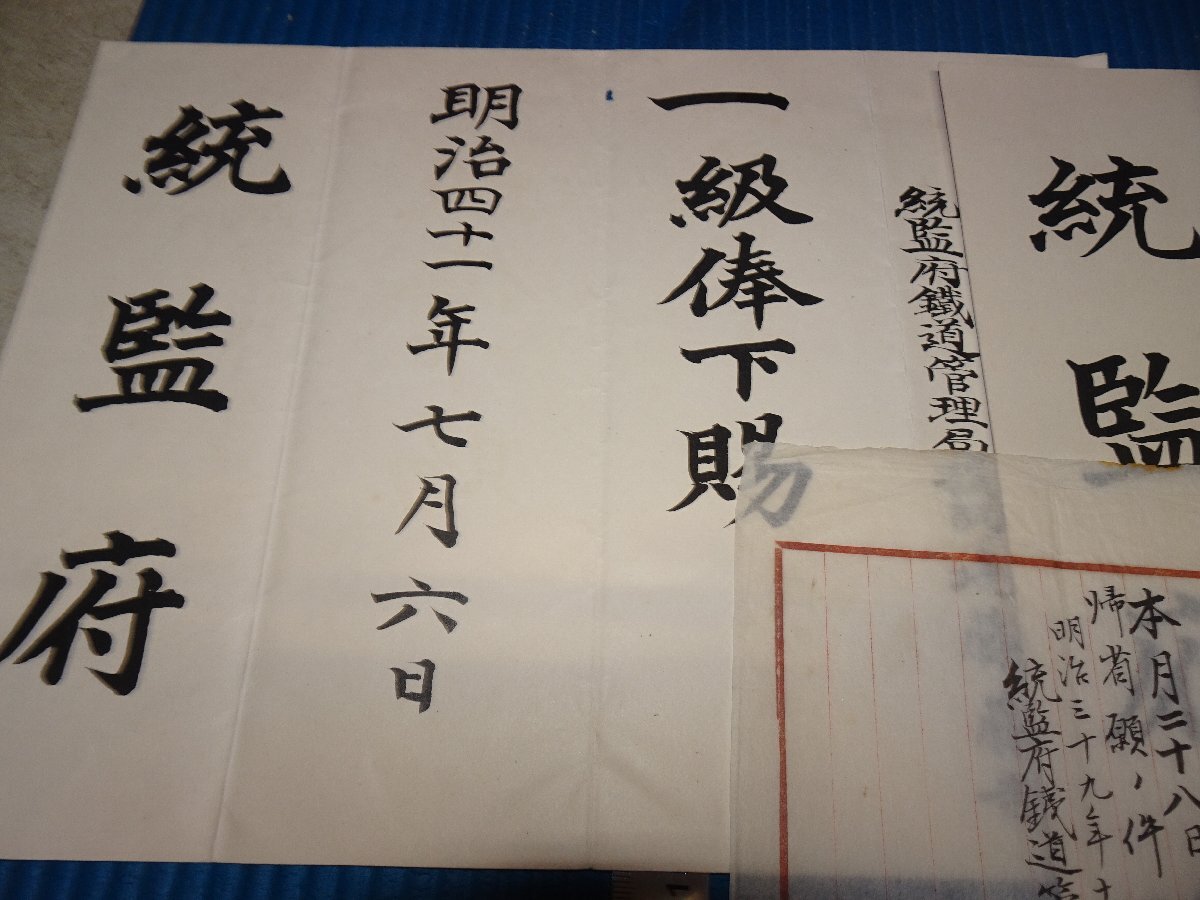 統監
統監府鐵道管理局
一級俸下賜
明治四十一年七月六日
統監府
本月二十八日
帰省願ノ件
明治三十九年十
統監府鐵道管